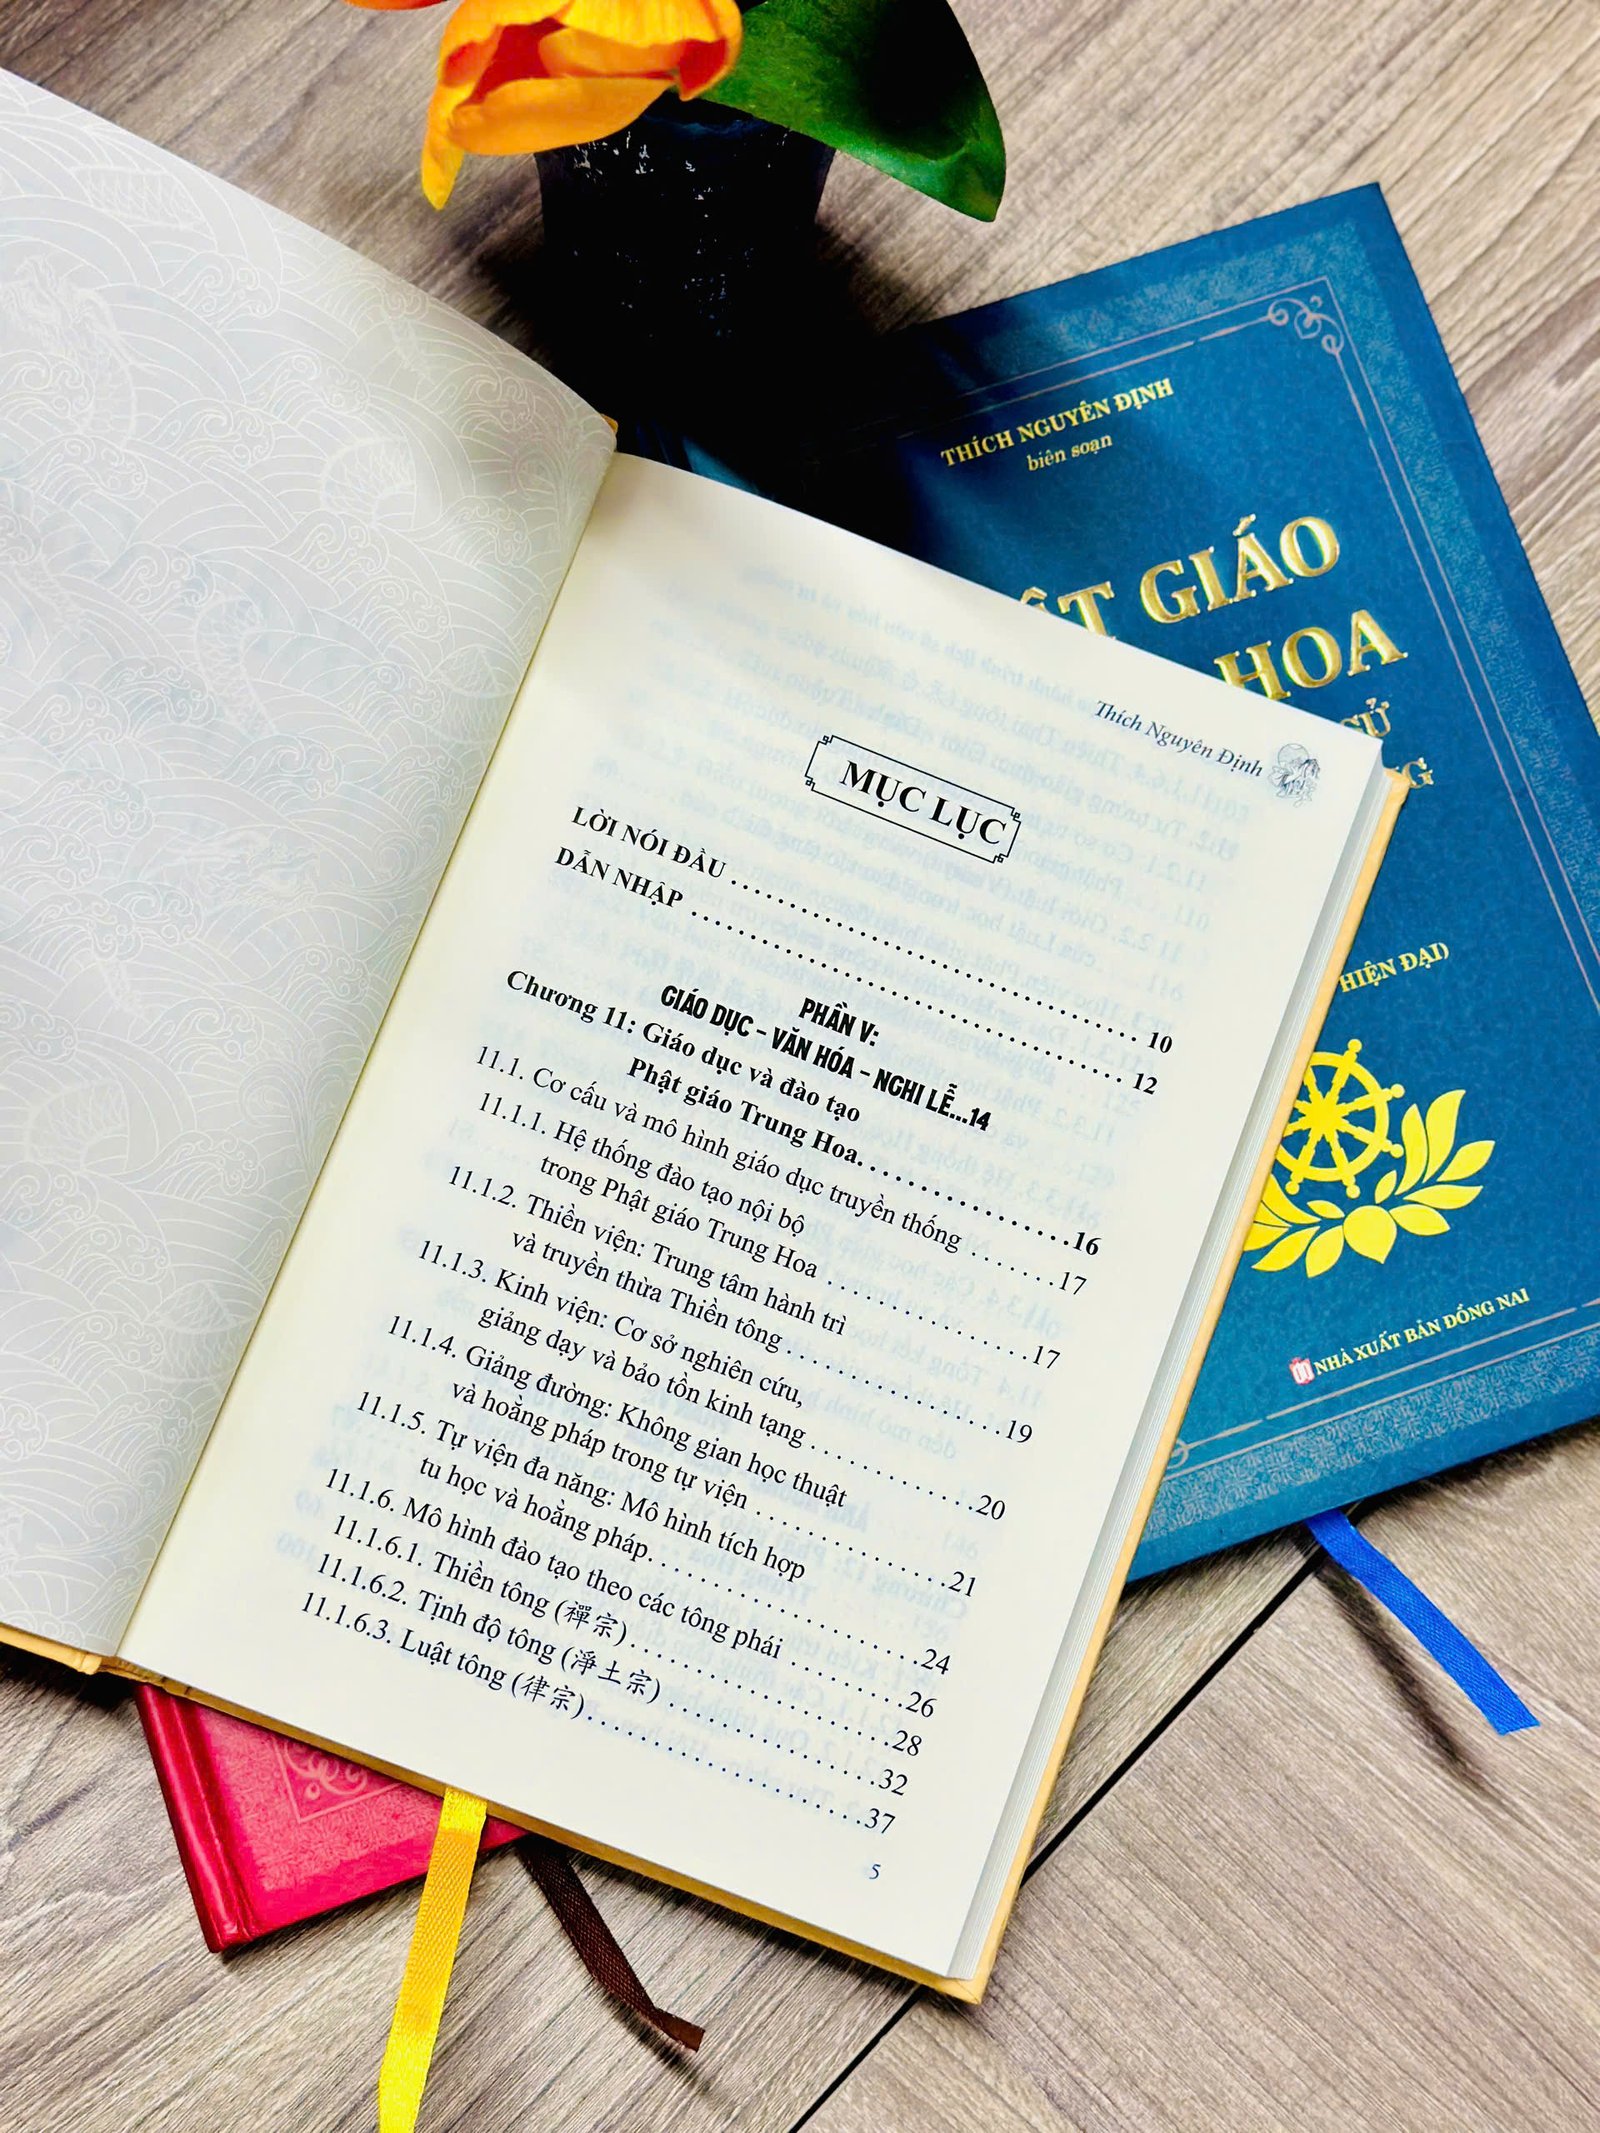 Thích Nguyên Định
MỤC LỤC
LỜI NÓI ĐẦU . . . . . . . . . . . . . . . . . . . . . . . . . . . . . . 10
DẪN NHẬP . . . . . . . . . . . . . . . . . . . . . . . . . . . . . . 12
PHẦN V:
GIÁO DỤC – VĂN HÓA – NGHI LỄ...14
Chương 11: Giáo dục và đào tạo
Phật giáo Trung Hoa. . . . . . . . . . . . . . . .16
11.1. Cơ cấu và mô hình giáo dục truyền thống . . . . . . .17
11.1.1. Hệ thống đào tạo nội bộ
trong Phật giáo Trung Hoa . . . . . . . . . . . . . . .17
11.1.2. Thiền viện: Trung tâm hành trì
và truyền thừa Thiền tông . . . . . . . . . . . . . . . .19
11.1.3. Kinh viện: Cơ sở nghiên cứu,
giảng dạy và bảo tồn kinh tạng . . . . . . . . . . . .20
11.1.4. Giảng đường: Không gian học thuật
và hoằng pháp trong tự viện . . . . . . . . . . . . . .21
11.1.5. Tự viện đa năng: Mô hình tích hợp
tu học và hoằng pháp. . . . . . . . . . . . . . . . . . .24
11.1.6. Mô hình đào tạo theo các tông phái . . . . . . . . .26
11.1.6.1. Thiền tông (禪宗). . . . . . . . . . . . . . . . . . .28
11.1.6.2. Tịnh độ tông (淨土宗) . . . . . . . . . . . . . . . .32
11.1.6.3. Luật tông (律宗). . . . . . . . . . . . . . . . . . . .37
5
THÍCH NGUYÊN ĐỊNH
biên soạn
GIÁO
HOA
SỬ
HIỆN ĐẠI)
NHÀ XUẤT BẢN ĐỒNG NAI